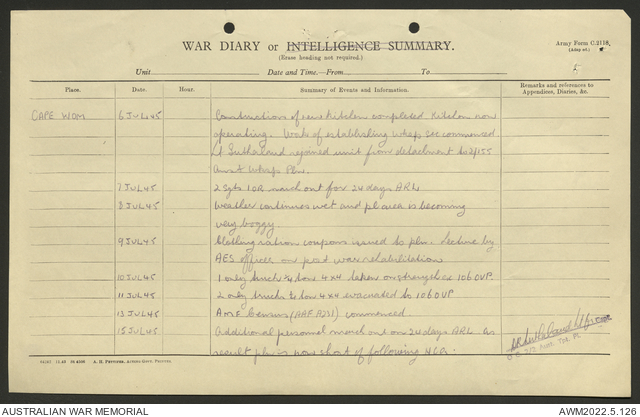 WAR DIARY or INTELLIGENCE SUMMARY.
(Erase heading not required.)
Army Form C.2118.
(Adapted)
Unit
Date and Time—From
To
Place.
Date.
Hour.
Summary of Events and Information.
Remarks and references to Appendices, Diaries, &c.
CAPE WOM 6 JUL 45 Construction of new kitchen completed. Kitchen now
operating. Work of establishing wksps sec commenced
Lt Sutherland rejoined unit from detachment to 2/155
Wksps Pln.
7 JUL 45 2 Sgts 1 OR march out for 24 days ARL
8 JUL 45 Weather continues wet and pl area is becoming
very boggy
9 JUL 45 Clothing ration coupons issued to pln. Lecture by
AES officer on post war rehabilitation.
10 JUL 45 1 only truck ¼ ton 4x4 taken on strength ex 106 OVP.
11 JUL 45 2 only trucks ¼ ton 4x4 evacuated to 106 OVP
13 JUL 45 AMF Census (AAF A231) commenced.
15 JUL 45 Additional personnel march out on 24 days ARL as
result pln is now short of following NCO.
Tpt. Pl.
A. H. Pettifer, Acting Govt. Printer.
AUSTRALIAN WAR MEMORIAL
AWM2022.5.126